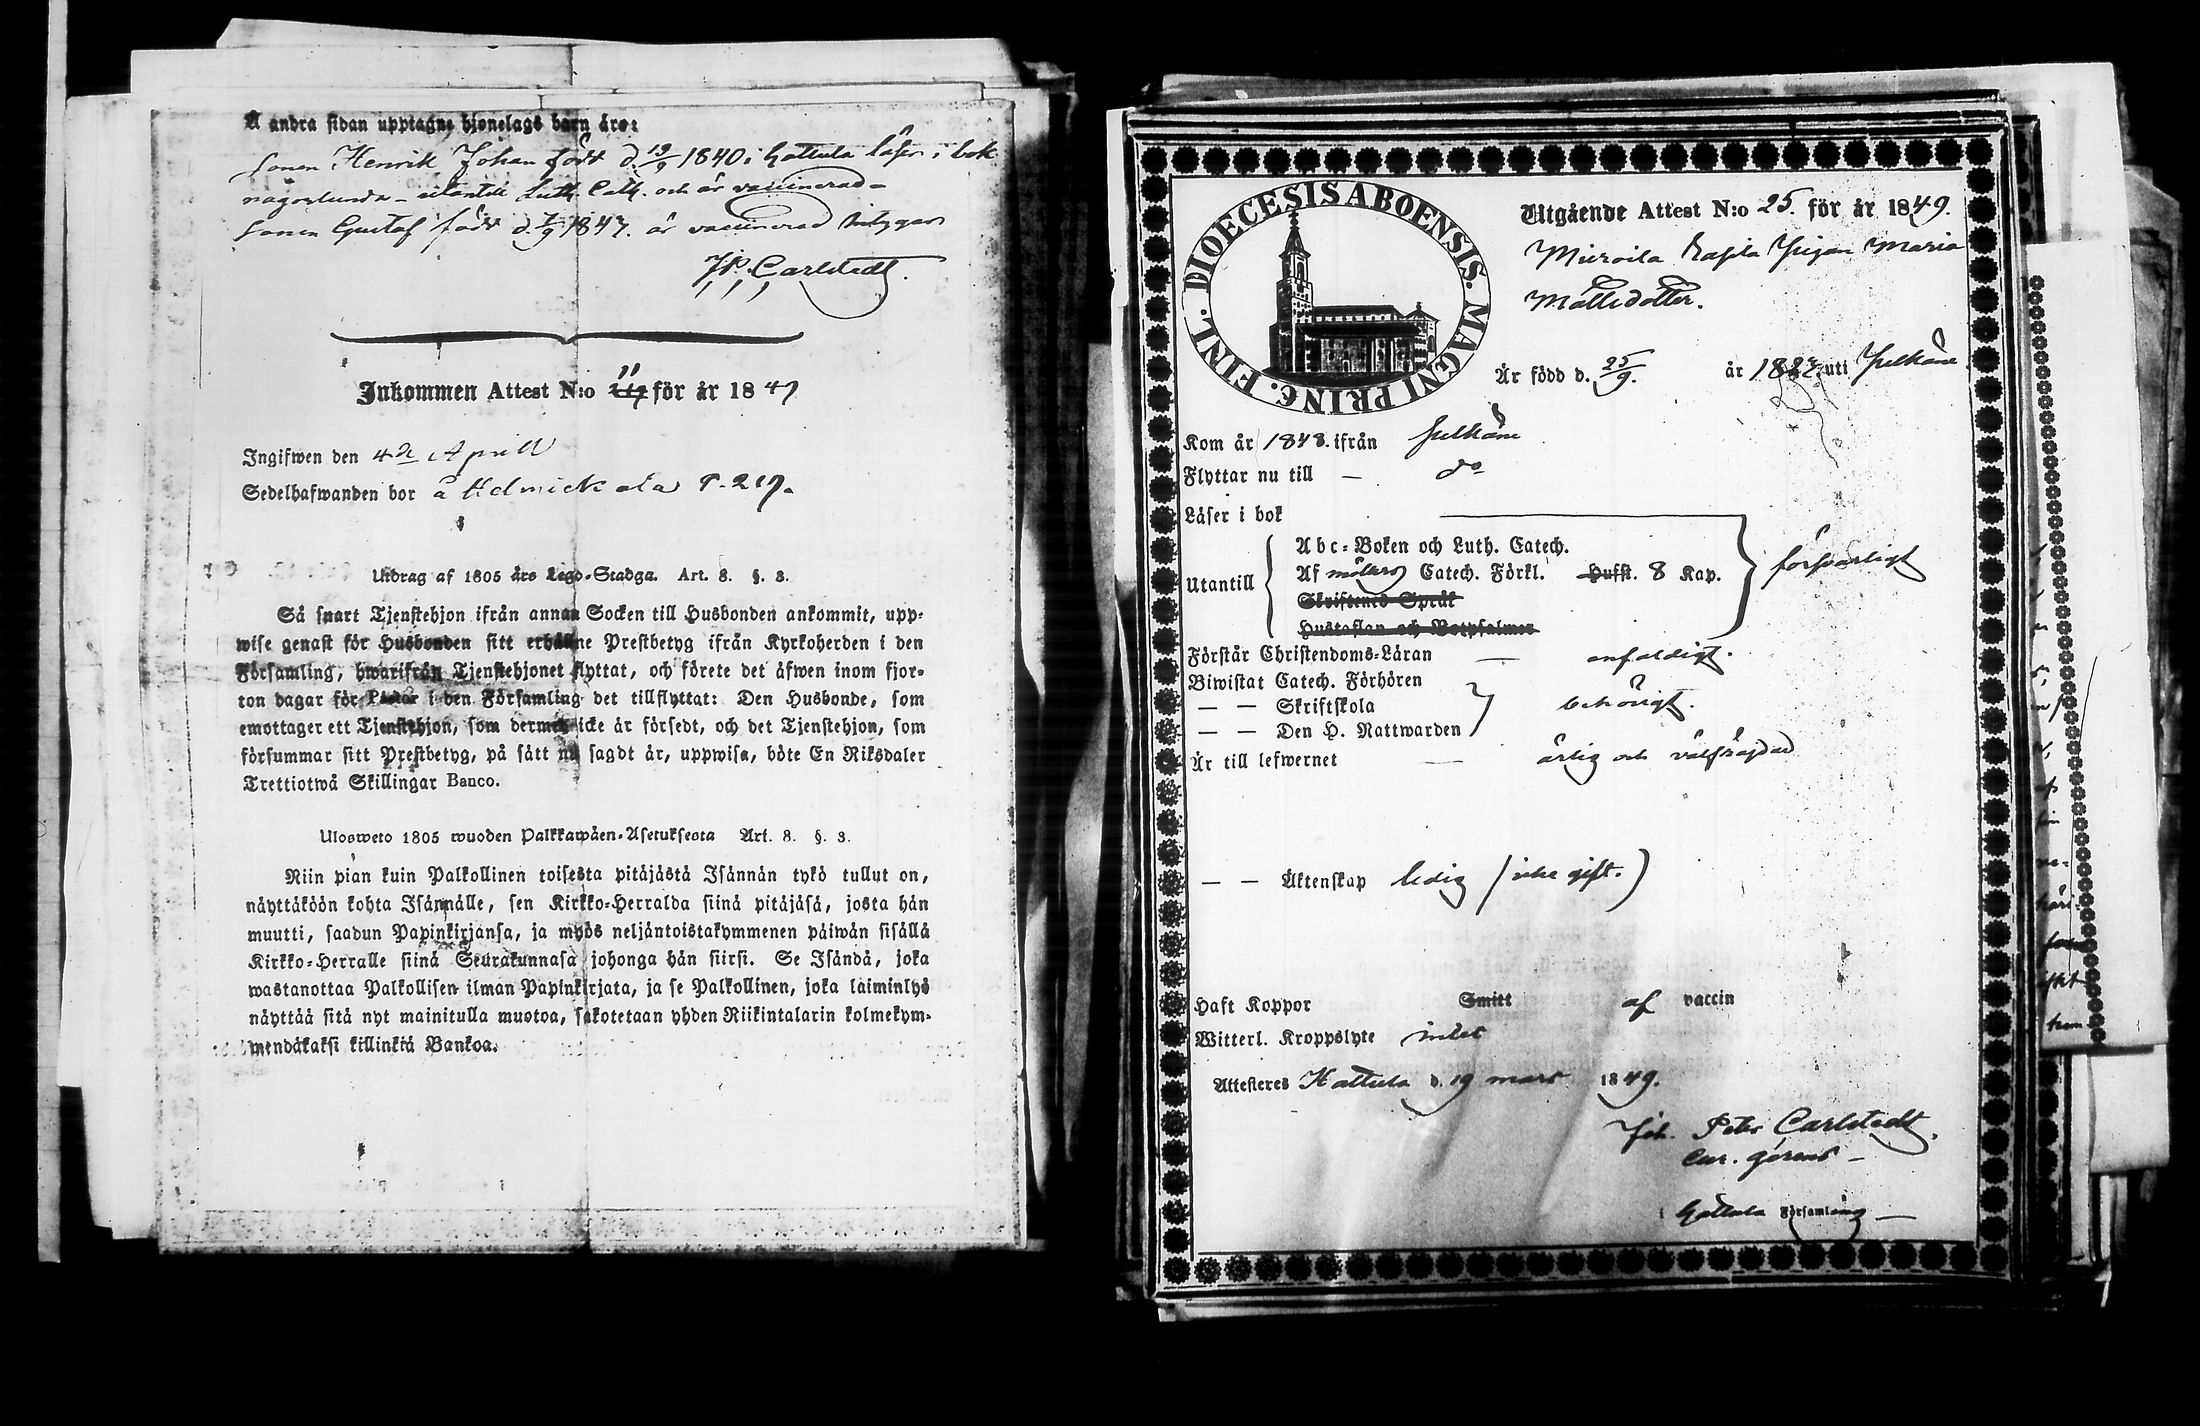 Å andra sidan upptagne hjonelags barn äro:
Sonen Henrik Johan född d. 19/9 1840 i Hattula läser i bok
någorlunda - utantill Luth. Cath. och är vaccinerad -
Sonen Gustaf född d. 7/9 1847. är vaccinerad intygar
J.P. Carlstedt.
Inkommen Attest N:o 11 för år 1849
Ingifwen den 4de Aprill
Sedelhafwanden bor å Helmickala P. 219.
Utdrag af 1805 års Lego-Stadga. Art. 8. §. 3.
Så snart Tjenstehjon ifrån annan Socken till Husbonden ankommit, upp-
wise genast för Husbonden sitt erhållne Prestbetyg ifrån Kyrkoherden i den
Församling, hwarifrån Tjenstehjonet flyttat, och förete det äfwen inom fjor-
ton dagar för Pastor i den Församling det tillflyttat: Den Husbonde, som
emottager ett Tjenstehjon, som dermed icke är försedt, och det Tjenstehjon, som
försummar sitt Prestbetyg, på sätt nu sagdt är, uppwisa, böte En Riksdaler
Trettiotwå Skillingar Banco.
Ulosweto 1805 wuoden Palkkawäen-Asetuksesta Art. 8. §. 3.
Niin pian kuin Palkollinen toisesta pitäjästä Isännän tykö tullut on,
näyttäköön kohta Isännälle, sen Kirkko-Herralda siinä pitäjäsä, josta hän
muutti, saadun Papinkirjansa, ja myös neljäntoistakymmenen päiwän sisällä
Kirkko-Herralle siinä Seurakunnasa johonga hän siirsi. Se Isändä, joka
wastanottaa Palkollisen ilman Papinkirjata, ja se Palkollinen, joka laiminlyö
näyttää sitä nyt mainitulla muotoa, sakotetaan yhden Riikintalarin kolmekym-
mendäkaksi killinkiä Bankoa.
FINL. DIOECESIS ABOENSIS. MAGNI PRINC.
Utgående Attest N:o 25. för år 1849.
Mieroila Rapila Pigan Maria
Mattsdotter.
Är född d. 25/9. år 1827. uti Pelkäne
Kom år 1848. ifrån Pelkäne
Flyttar nu till — do
Läser i bok
Utantill
Abc-Boken och Luth. Catech.
Af möllers Catech. Förkl. Hufst. 8 Kap. försvarligt
Skriftenes Språk
Hustaflan och Botpsalmer
Förstår Christendoms-Läran — enfaldigt.
Biwistat Catech. Förhören
— — Skriftskola behörigt.
— — Den H. Nattwarden
Är till lefwernet — ärlig och välfräjdad
— — Äktenskap ledig (icke gift.)
Haft Koppor Smitt af vaccin
Witterl. Kroppslyte intet
Attesteres Hattula d. 19 mars 1849.
Joh. Peter Carlstedt.
Cur. gerens —
Hattula Församling —